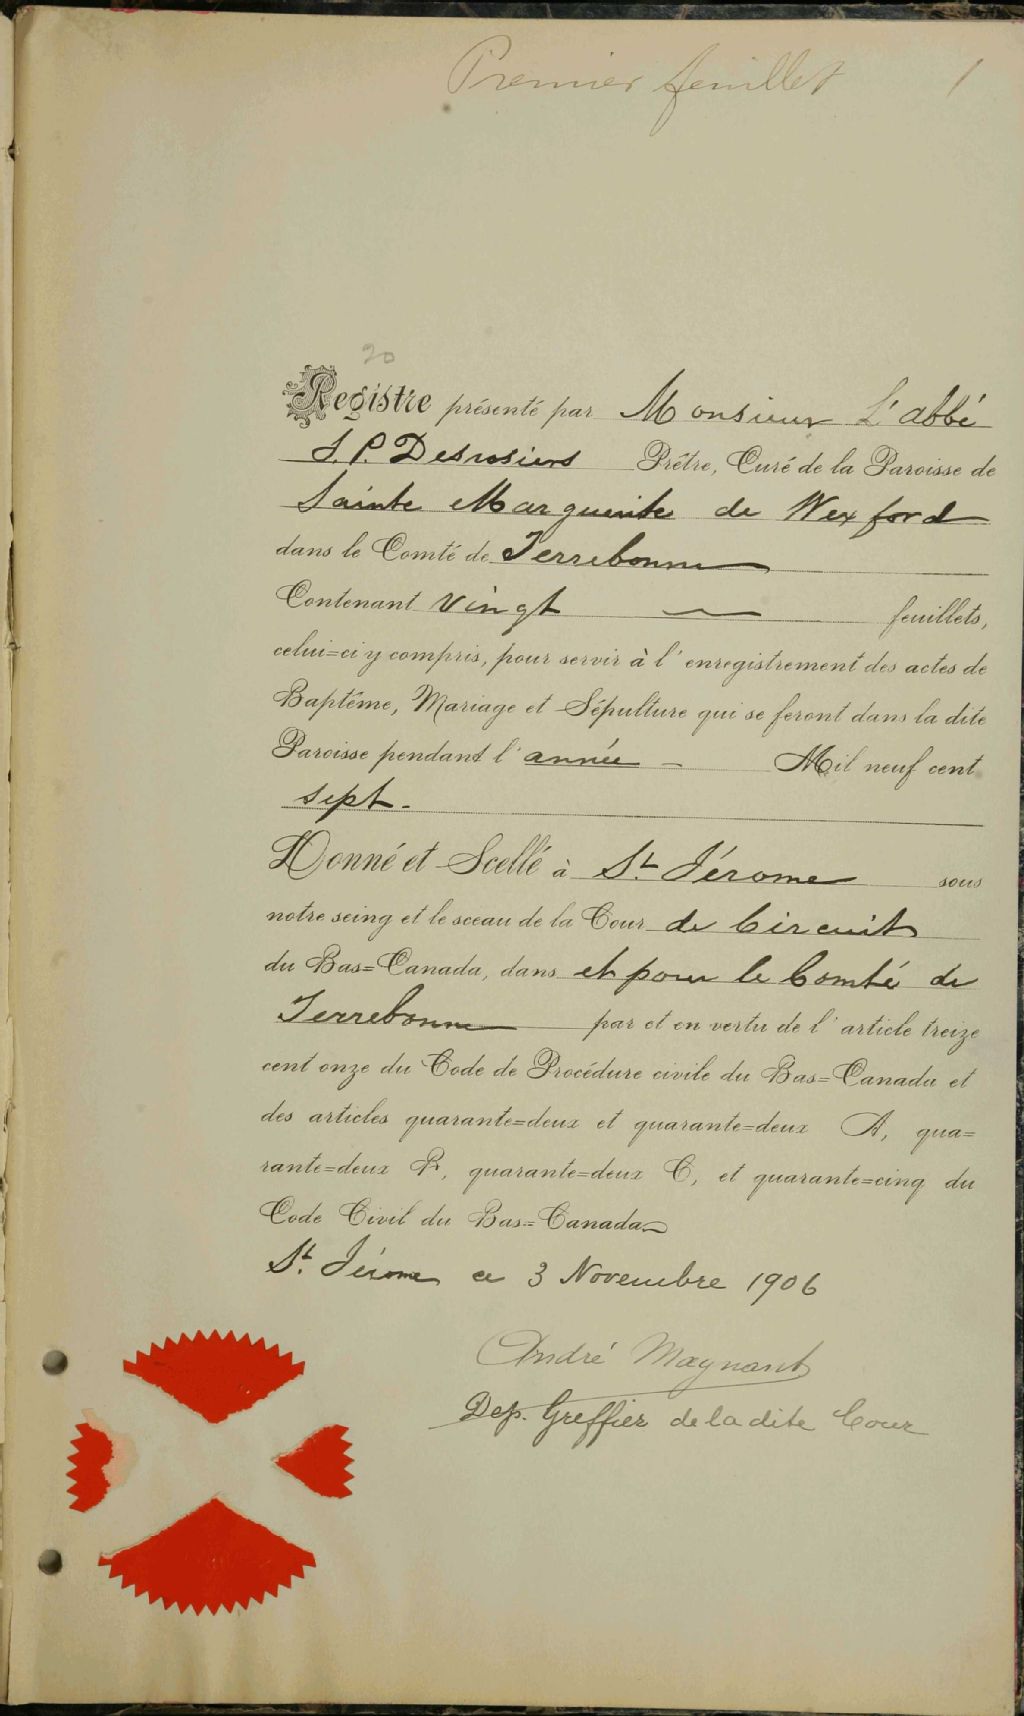 Premier feuillet 1
20
Registre présenté par Monsieur L'abbé
J. P. Desrosiers Prêtre, Curé de la Paroisse de
Sainte Marguerite de Wexford
dans le Comté de Terrebonne
Contenant vingt feuillets,
celui=ci y compris, pour servir à l'enregistrement des actes de
Baptême, Mariage et Sépulture qui se feront dans la dite
Paroisse pendant l'année — Mil neuf cent
sept.
Donné et Scellé à St. Jérome sous
notre seing et le sceau de la Cour de Circuit
du Bas=Canada, dans et pour le Comté de
Terrebonne par et en vertu de l'article treize
cent onze du Code de Procédure civile du Bas=Canada et
des articles quarante=deux et quarante=deux A, qua=
rante=deux B, quarante=deux C, et quarante=cinq du
Code Civil du Bas=Canada
St. Jérome ce 3 Novembre 1906
André Magnant
Dep. Greffier de la dite Cour